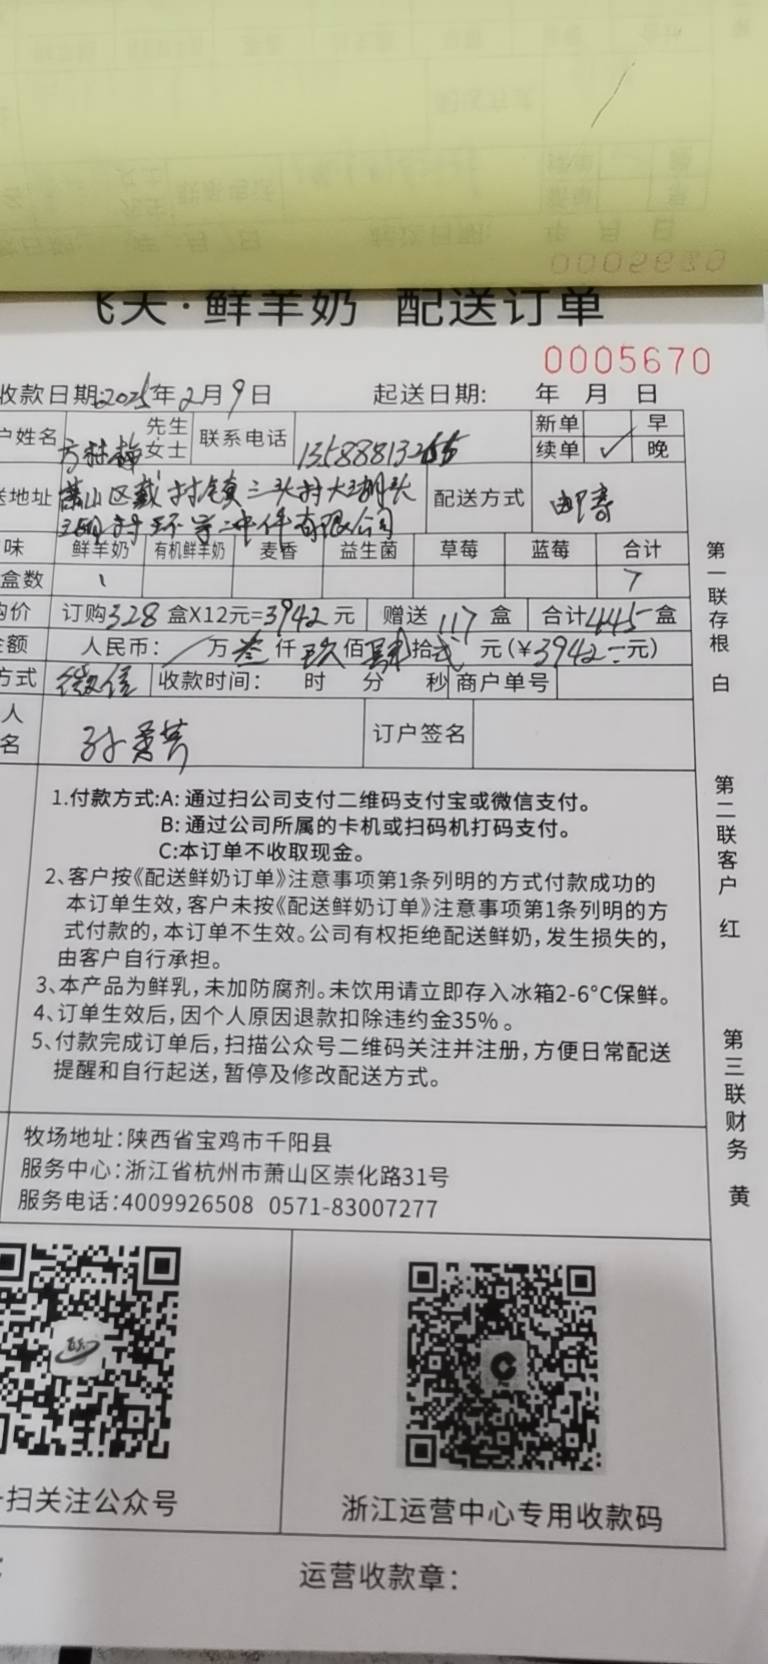 飞天·鲜羊奶 配送订单
0005670
收款日期:2025年2月9日 起送日期: 年 月 日
户姓名 先生 女士 联系电话 新单 早
续单 ✓ 晚
送地址 萧山区戴村镇三头村大湖头 配送方式 邮寄
有限公司
味 鲜羊奶 有机鲜羊奶 麦香 益生菌 草莓 蓝莓 合计
盒数 1
购价 订购328盒X12元=3942元 赠送117盒 合计445盒
金额 人民币: 万叁仟玖佰肆拾贰元(¥3942-元)
方式 微信 收款时间: 时 分 秒 商户单号
人
名 订户签名
1.付款方式:A: 通过扫公司支付二维码支付宝或微信支付。
B: 通过公司所属的卡机或扫码机打码支付。
C:本订单不收取现金。
2、客户按《配送鲜奶订单》注意事项第1条列明的方式付款成功的
本订单生效,客户未按《配送鲜奶订单》注意事项第1条列明的方
式付款的,本订单不生效。公司有权拒绝配送鲜奶,发生损失的,
由客户自行承担。
3、本产品为鲜乳,未加防腐剂。未饮用请立即存入冰箱2-6°C保鲜。
4、订单生效后,因个人原因退款扣除违约金35%。
5、付款完成订单后,扫描公众号二维码关注并注册,方便日常配送
提醒和自行起送,暂停及修改配送方式。
牧场地址:陕西省宝鸡市千阳县
服务中心:浙江省杭州市萧山区崇化路31号
服务电话:4009926508 0571-83007277
扫关注公众号
浙江运营中心专用收款码
运营收款章:
第一联存根 白
第二联客户 红
第三联财务 黄